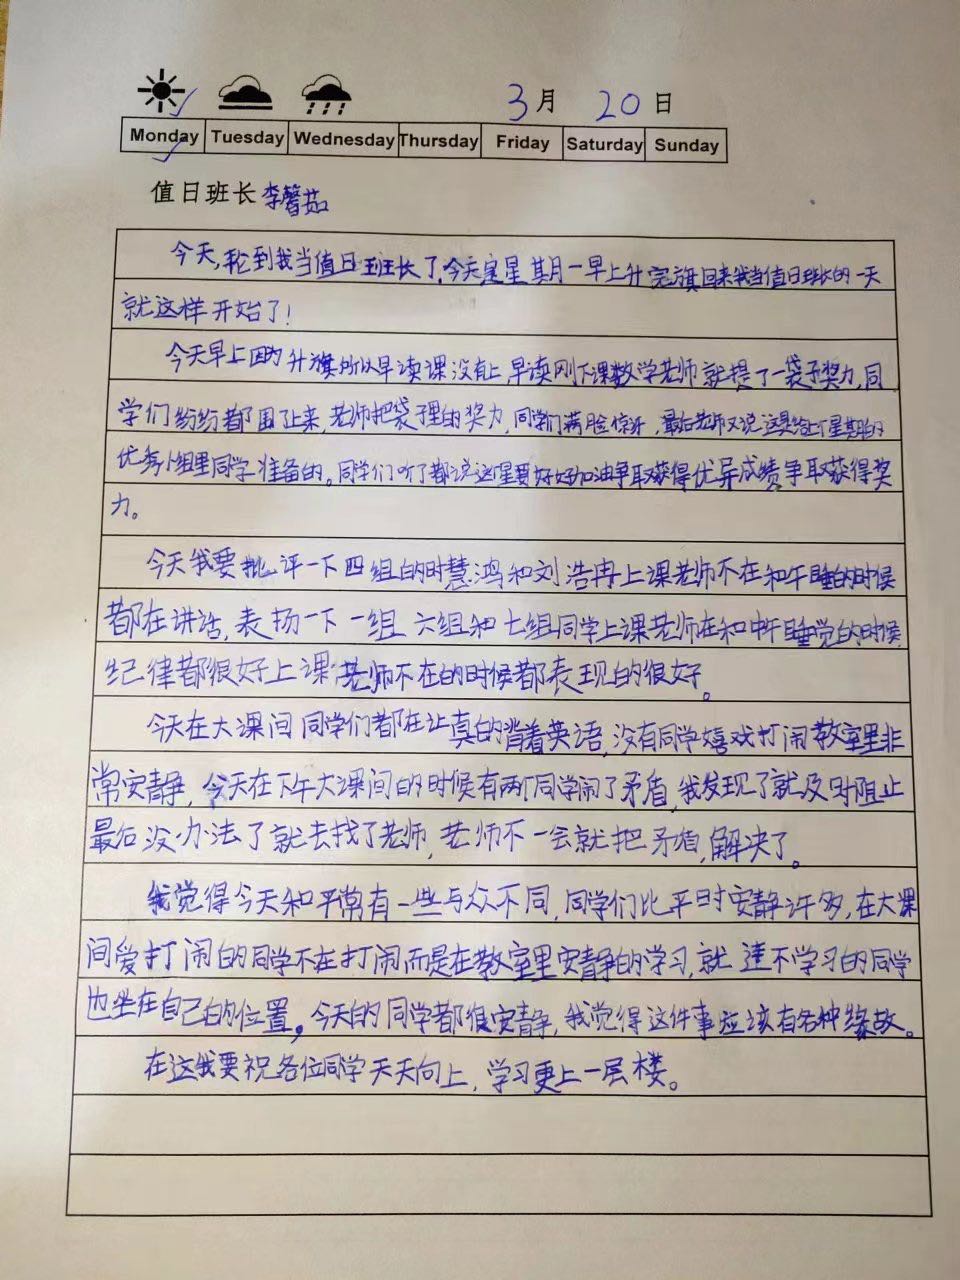 3月 20日
Monday Tuesday Wednesday Thursday Friday Saturday Sunday
值日班长 李馨茹
今天,轮到我当值日班长了,今天是星其月一早上升完旗回来我当值日班长的一天
就这样开始了!
今天早上因为升旗所以早读课没有上早读刚下课数学老师就提了一袋子奖力,同
学们纷纷都围了上来,老师把袋子里的奖力,同学们满脸惊讶,最后老师又说这是给上个星期的
优秀小组里同学准备的。同学们听了都说这星要好好加油争取获得优异成绩争取获得奖
力。
今天我要批评一下四组的时慧鸿和刘浩冉上课老师不在和午睡的时候
都在讲话,表扬一下一组 六组和七组同学上课老师在和中午睡觉的时候
纪律都很好上课老师不在的时候都表现的很好。
今天在大课间同学们都在认真的背着英语,没有同学嬉戏打闹教室里非
常安静,今天在下午大课间的时候有两个同学闹了矛盾,我发现了就及时阻止
最后没办法了就去找了老师,老师不一会就把矛盾,解决了。
我觉得今天和平常有一些与众不同,同学们比平时安静许多,在大课
间爱打闹的同学不在打闹而是在教室里安静的学习,就连不学习的同学
也坐在自己的位置,今天的同学都很安静,我觉得这件事应该有各种缘故。
在这我要祝各位同学天天向上,学习更上一层楼。